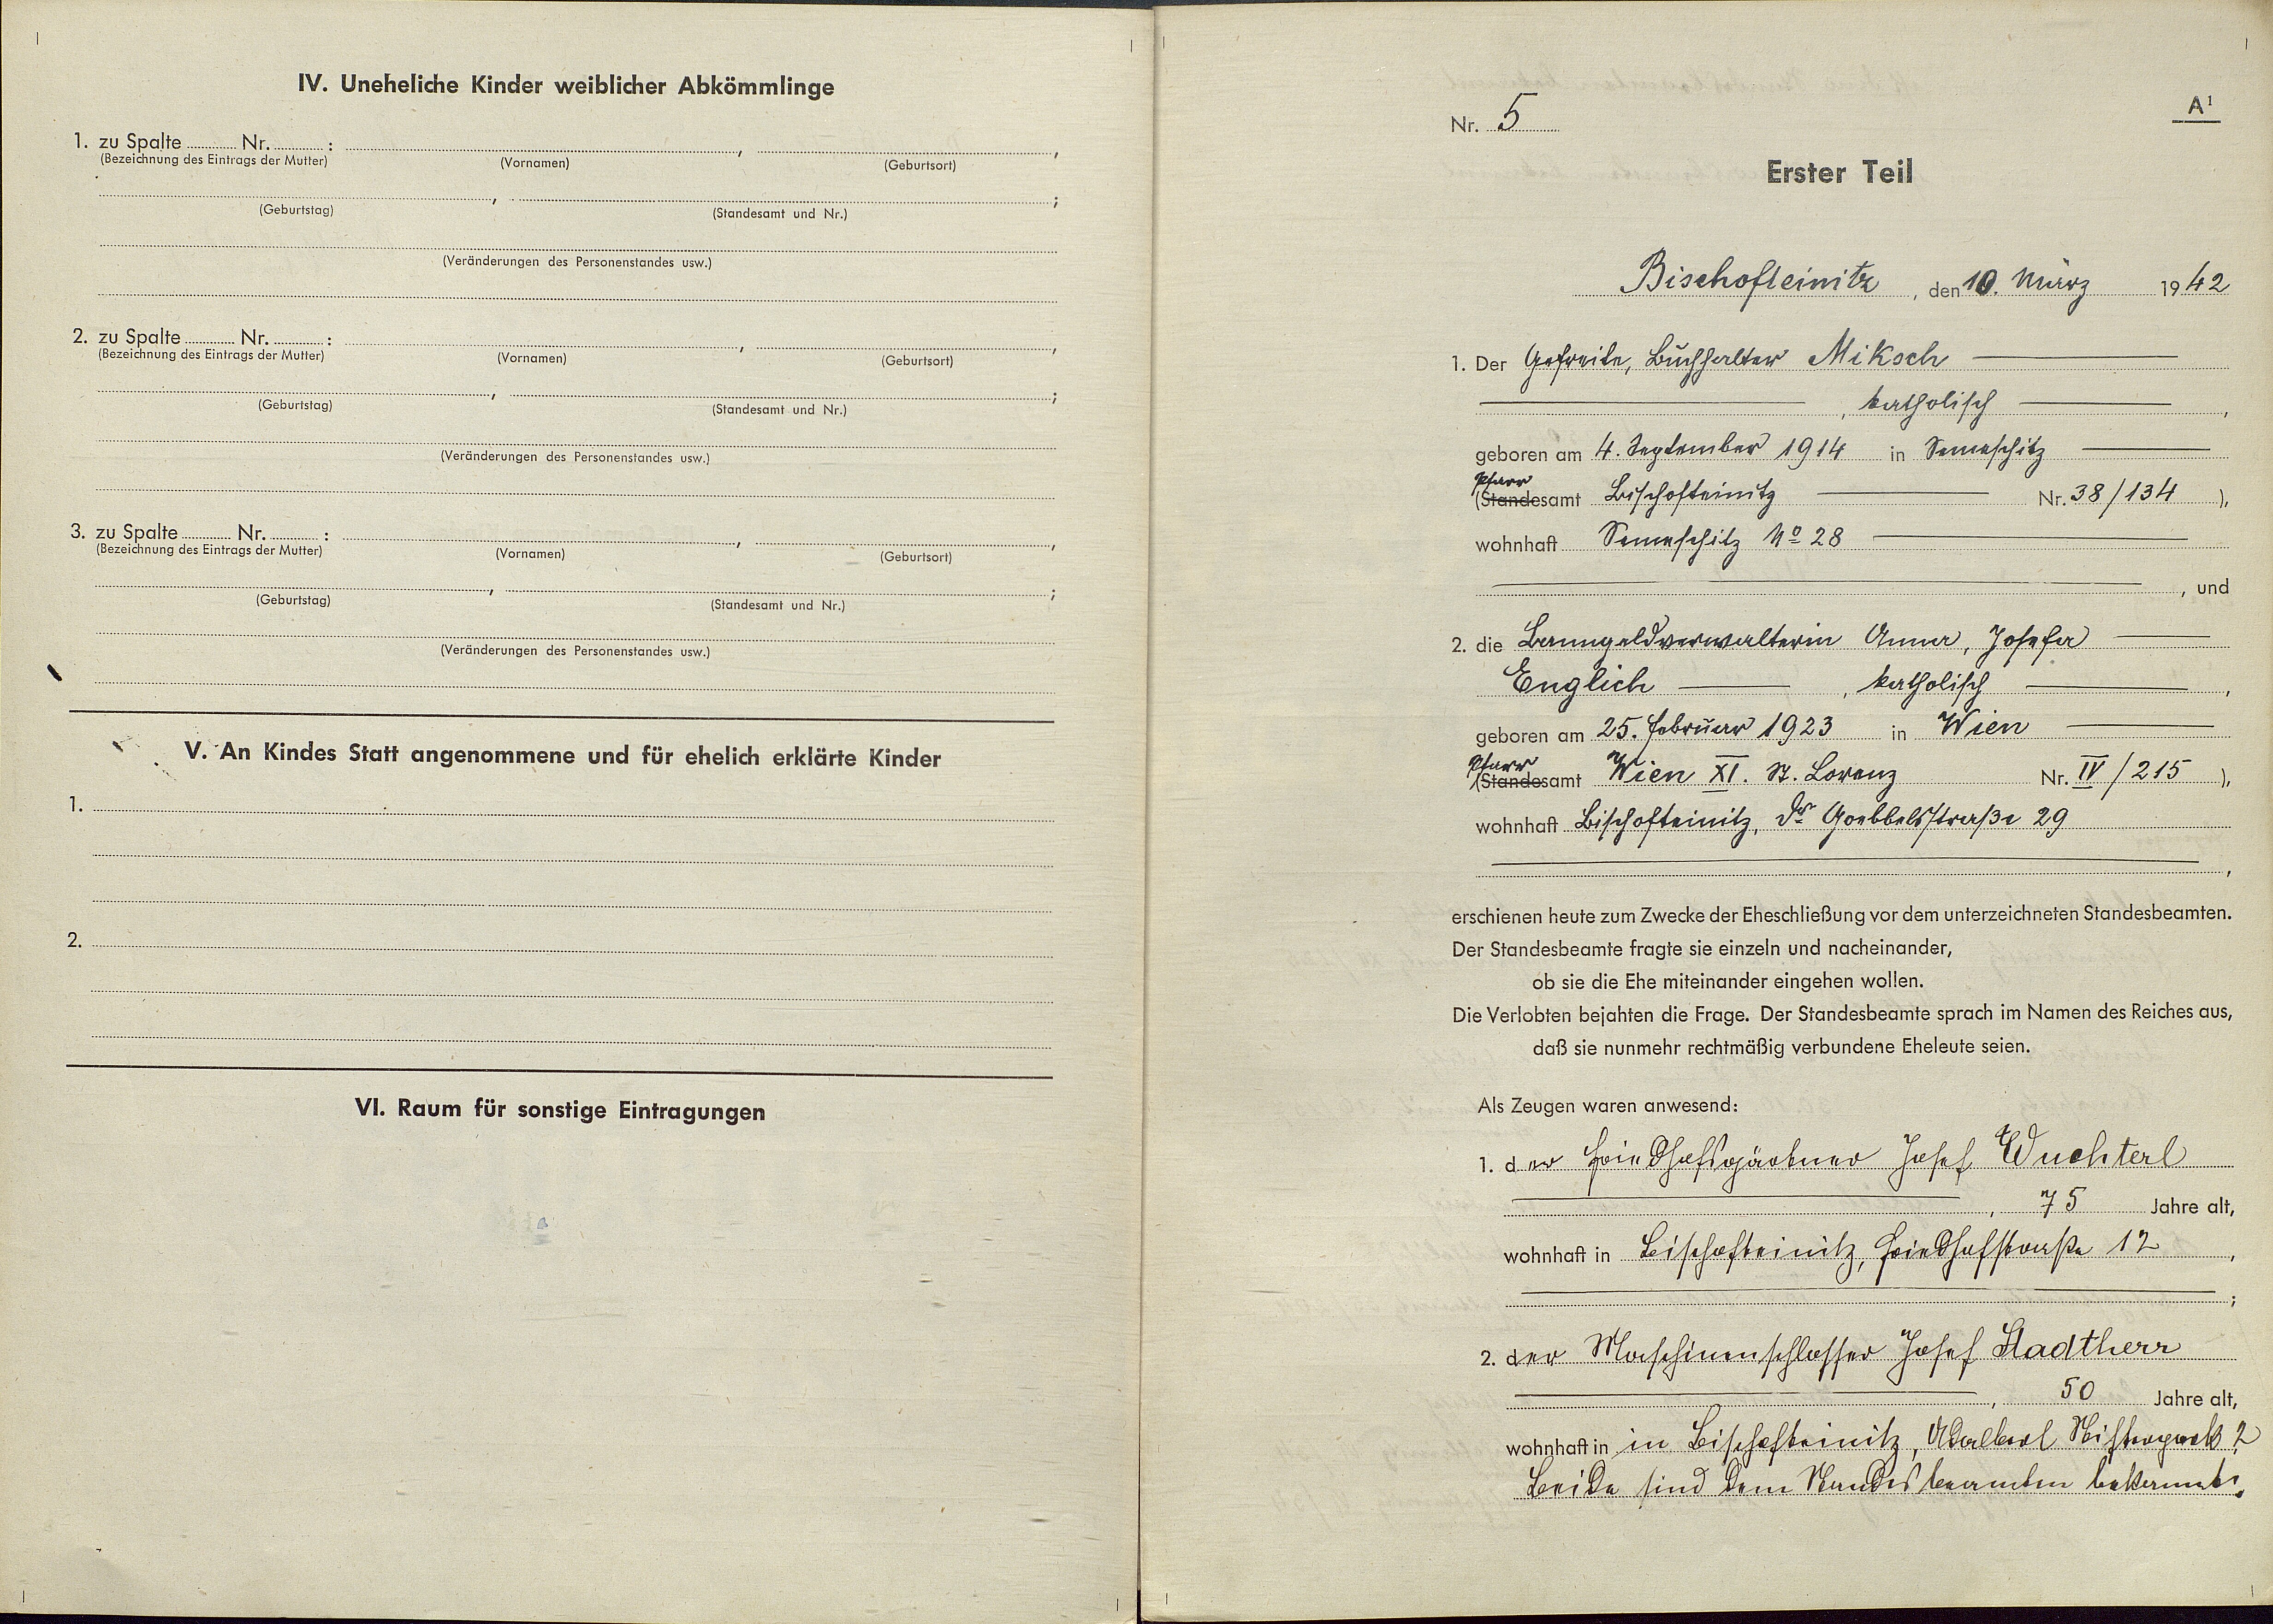 IV. Uneheliche Kinder weiblicher Abkömmlinge
1. zu Spalte ............ Nr. ............ : ............................ , ............................ ,
(Bezeichnung des Eintrags der Mutter) (Vornamen) (Geburtsort)
............................ , ............................ ;
(Geburtstag) (Standesamt und Nr.)
(Veränderungen des Personenstandes usw.)
2. zu Spalte ............ Nr. ............ : ............................ , ............................ ,
(Bezeichnung des Eintrags der Mutter) (Vornamen) (Geburtsort)
............................ , ............................ ;
(Geburtstag) (Standesamt und Nr.)
(Veränderungen des Personenstandes usw.)
3. zu Spalte ............ Nr. ............ : ............................ , ............................ ,
(Bezeichnung des Eintrags der Mutter) (Vornamen) (Geburtsort)
............................ , ............................ ;
(Geburtstag) (Standesamt und Nr.)
(Veränderungen des Personenstandes usw.)
V. An Kindes Statt angenommene und für ehelich erklärte Kinder
1.
2.
VI. Raum für sonstige Eintragungen
A¹
Nr. 5
Erster Teil
Bischofteinitz, den 10. März 1942
1. Der Gefreite, Buchhalter Miksch
, katholisch ,
geboren am 4. September 1914 in Semeschitz
Pfarr
(Standesamt Bischofteinitz Nr. 38/134 ),
wohnhaft Semeschitz No 28
, und
2. die Anna, Josefa
Englich , katholisch ,
geboren am 25. Februar 1923 in Wien
Pfarr
(Standesamt Wien XI. St. Lorenz Nr. IV/215 ),
wohnhaft Bischofteinitz, Dr Goebbelsstraße 29
,
erschienen heute zum Zwecke der Eheschließung vor dem unterzeichneten Standesbeamten.
Der Standesbeamte fragte sie einzeln und nacheinander,
ob sie die Ehe miteinander eingehen wollen.
Die Verlobten bejahten die Frage. Der Standesbeamte sprach im Namen des Reiches aus,
daß sie nunmehr rechtmäßig verbundene Eheleute seien.
Als Zeugen waren anwesend:
1. der Friedhofsgärtner Josef Wuchterl
, 75 Jahre alt,
wohnhaft in Bischofteinitz, Friedhofstraße 12 ,
;
2. der Maschinenschlosser Josef Stadtherr
, 50 Jahre alt,
wohnhaft in in Bischofteinitz, Adalbert Stifterpark 2
Beide sind dem Standesbeamten bekannt.